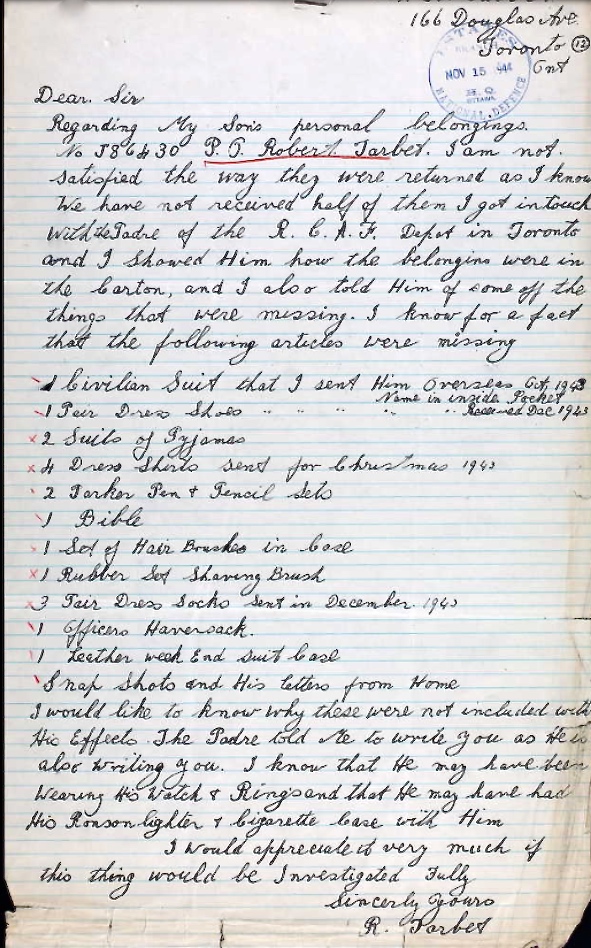 166 Douglas Ave.
Toronto (12)
Ont
ESTATES
BRANCH
NOV 15 '44
H.Q.
OTTAWA
NATIONAL DEFENCE
Dear. Sir
Regarding My Sons personal belongings.
No J86430 P.O. Robert Tarbet. I am not.
satisfied the way they were returned as I know
We have not received half of them I got in touch
With the Padre of the R.C.A.F. Depot in Toronto
and I showed Him how the belongins were in
the Carton, and I also told Him of some off the
things that were missing. I know for a fact
that the following articles were missing
1 Civilian Suit that I sent Him Overseas Oct, 1943
Name in inside Pocket
1 Pair Dress Shoes " " " " " Received Dec 1943
x 2 Suits of Pyjamas
x 4 Dress Shirts sent for Christmas 1943
2 Parker Pen & Pencil sets
1 Bible
1 Set of Hair Brushes in Case
x 1 Rubber Set Shaving Brush
x 3 Pair Dress Socks sent in December. 1943
1 Officers Haversack.
1 Leather week End Suit Case
Snap Shots and His letters from Home
I would like to know why these were not included with
His Effects. The Padre told Me to write you as He is
also writing you. I know that He may have been
Wearing His Watch & Rings and that He may have had
His Ronson lighter & Cigarette Case with Him
I would appreciate it very much if
this thing would be Investigated Fully
Sincerly Yours
R. Tarbet